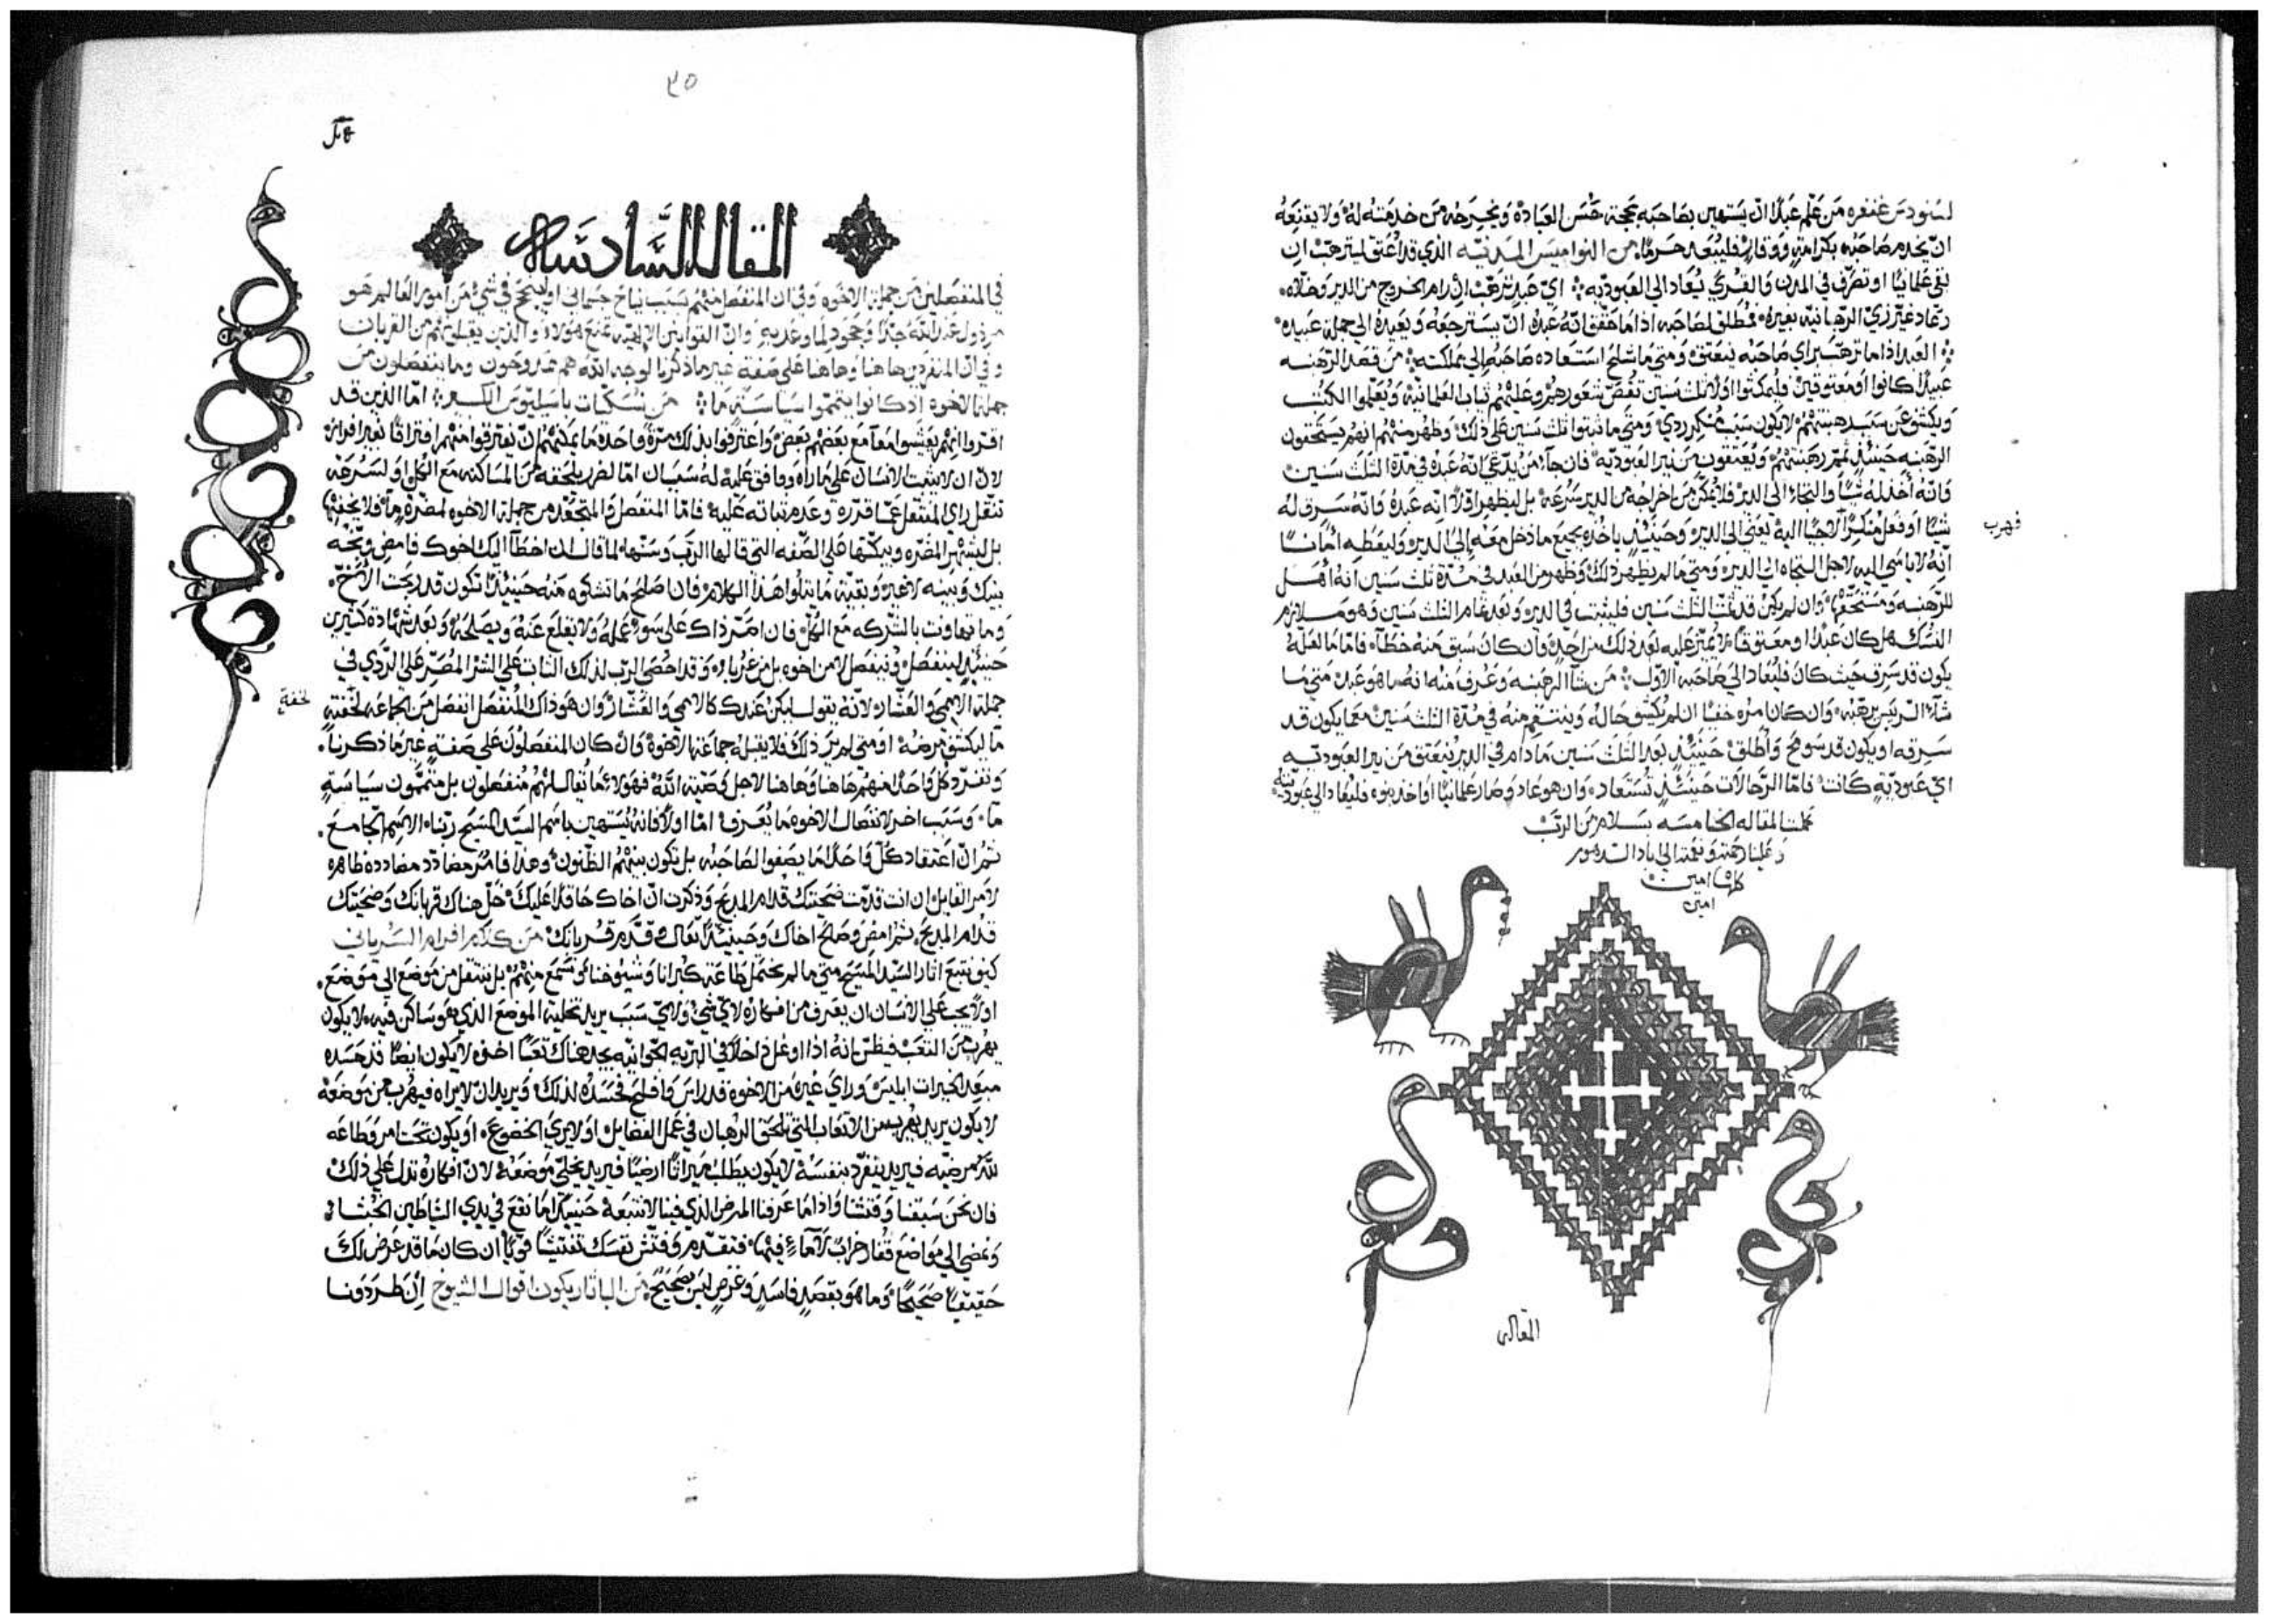 لسنودس غنغره من علم عبدا ان يستهين بصاحبه بحجة حسن العباده ويخرجه من خدمته له ولا يقنعه
ان يخدم صاحبه بكرامة ووقار فليبعد حرما من النواميس المدنيه الذي قد اعتق ليترهب ان
بقي علمانيا او تصرف في المدن والقري يعاد الي العبوديه اي عبد ترهب ان رام الخروج من الدير وخلاه
وعاد غير زي الرهبانيه بغيره فمطلق لصاحبه اذا ما حقق انه عبده ان يسترجعه ويعيده الي جملة عبيده
العبد اذا ما ترهب براي صاحبه فيعتق ومتي ما شلح استعاده صاحبه الي مملكته من قصد الرهبنه
عبيدا كانوا او معتوقين فليمكثوا اولا تلت سنين تقص شعورهم وعليهم تياب العلمانيه ويعلموا الكتب
ويكشف عن سبب رهبنتهم لا يكون سبب منكر ردي ومتي ما ثبتوا تلت سنين علي ذلك وظهر منهم انهم يستحقون
الرهبنه حينئذ تتم رهبنتهم ويعتقون من نير العبوديه فان جاء من يدعي انه عبده في مدة التلت سنين
وانه اخذ له شيا والتجا الي الدير فلا يمكن من اخراجه من الدير بسرعه بل ليظهر اولا انه عبده وانه سرق له
شيا او فعل منكرا لاجيا اليه يعني الي الدير وحينئذ ياخذه بجميع ما دخل معه الي الدير وليعطه امانا
فهرب
انه لا ياسي اليه لاجل التجاه الي الدير ومتي ما لم يظهر ذلك وظهر من العبد في مدة تلت سنين انه اهل
للرهبنه ومستحقها وان لم يكن قد تمت التلت سنين فليثبت في الدير وبعد تمام التلت سنين وهو ملازم
النسك هل كان عبدا او معتوقا لا يعير عليه بعد ذلك من احد وان كان سبق منه خطا فاما ما لعله
يكون قد سرق حيث كان فليعاد الي صاحبه الاول من شا الرهبنه وعرف منه انه ما هو عبد متي ما
شاء الريس رهبه وان كان امره خفيا ان لم يكشف حاله وينتقم منه في مدة التلت سنين مما يكون قد
سرقه او يكون قد سومح واطلق حينئذ بعد التلت سنين ما دام في الدير فيعتق من نير العبوديه
اي عبودية كانت فاما الرحالات حينئذ تستعاد وان هو عاد وصار علمانيا او اخذ بنوه فليعاد الي عبوديته
كملت المقاله الخامسه بسلام من الرب
وعلينا رحمته ونعمته الي اباد الدهور
كلها امين
امين
المقاله
٣٥
المقاله السادسه
في المنفصلين من جملة الاخوه وفي ان المنفصل منهم بسبب نياح جسداني او لينجح في شي من امور العالم هو
مرذول عند الله جدا وجحود لما وعد به وان القوانين الالهيه تمنع هولاء والذين يقبلونهم من القربان
وفي ان المنفردين هاهنا وهاهنا علي صفة غير ما ذكرنا لوجه الله هم ممدوحون وما ينفصلون من
جملة الاخوه اذ كانوا يتمموا سياسة ما من نسكيات باسيليوس الكبير اما الذين قد
اقروا انهم يعيشوا معا مع بعضهم بعض واعترفوا بذلك مرة واحدة ما يمكنهم ان يفترقوا منهم افتراقا بغير افراز
لان ان لا يثبت الانسان علي ما راه ووافق عليه له سببان اما لضرر يلحقه من المساكنه مع الكل او لسرعه
تنقل راي المنتقل عما قرره وعدم ثباته عليه فاما المنفصل والمتجعد من جملة الاخوه لمضرة ما فلا يخفيها
بل ليشهر المضره ويبكتها علي الصفه التي قالها الرب وسنها لما قال ان اخطا اليك اخوك فامض وبخه
بينك وبينه لا غير وبقية ما يتلوا هذا الكلام فان اصلح ما تشكوه منه حينئذ تكون قد ربحت الاخ
وما تهاونت بالشركه مع الكل فان اصر ذاك علي سوء عمله ولا يقلع عنه ويصلحه وبعد شهادة كثيرين
حينئذ لينفصل وينفصل لا من اخوه بل من غرباء وقد احصي الرب لذلك الثابت علي الشر المصر علي الردي في
جملة الاممي والعشار لانه يقول ليكن عندك كالاممي والعشار وان هو ذاك المنفصل انفصل من الجماعه لخفية
لخفة
ما ليكشف مرضه او متي لم ير ذلك فلا يقبله جماعة الاخوة وان كان المنفصلون علي صفة غير ما ذكرنا
وتفرد كل واحد منهم هاهنا وهاهنا لاجل وصية الله فهولاء ما يقال انهم منفصلون بل متممون سياسة
ما وسبب اخر لانفصال الاخوه ما يعرف اما اولا فانه يستهين باسم السيد المسيح ربنا الاسم الجامع
ثم ان اعتقاد كل واحد ما يصفوا لصاحبه بل تكون بينهم الظنون وهذا فامر مضادد مضادده ظاهره
لامر القايل ان انت قدمت ضحيتك قدام المذبح وذكرت ان اخاك حاقدا عليك خل هناك قربانك وضحيتك
قدام المذبح ثم امض وصالح اخاك وحينئذ تعال وقدم قربانك من كلام افرام السرياني
كيف نتبع اثار السيد المسيح متي ما لم نحتمل طاعة كبرانا وشيوخنا ونسمع منهم بل ننتقل من موضع الي موضع
اولا يجب علي الانسان ان يعرف من افكاره لاي شي ولاي سبب يريد تخلية الموضع الذي هو ساكن فيه لا يكون
يهرب من التعب فيظن انه اذا اوغل داخلا في البريه الجوانيه يجد هناك تعبا اخف لا يكون ايضا قد حسده
مبعد الخيرات ابليس وراي غيره من الاخوه قد راس وافلح فحسده لذلك ويريد ان لا يراه فيهرب من موضعه
لا يكون يريد يهرب من الاتعاب التي تلحق الرهبان في عمل الفضايل او لا يري الخضوع او يكون تحت امر وطاعه
لله مرضيه فيريد ينفرد بنفسه لا يكون يطلب ميراثا ارضيا فيريد يخلي موضعه لان افكاره تدل علي ذلك
فان نحن سبقنا وفتشنا واذا ما عرفنا المرض الذي فينا لا نتبعه حينئذ ما نقع في يدي الشياطين الخبثاء
ونمضي الي مواضع قفار خراب لا ماء فيها فتقدم وفتش نفسك تفتيشا قويا ان كان ما قد عرض لك
حقيقيا صحيحا وما هو بقصد فاسد وغرض ليس بصحيح من الباتاريكون اقوال الشيوخ ان طردونا